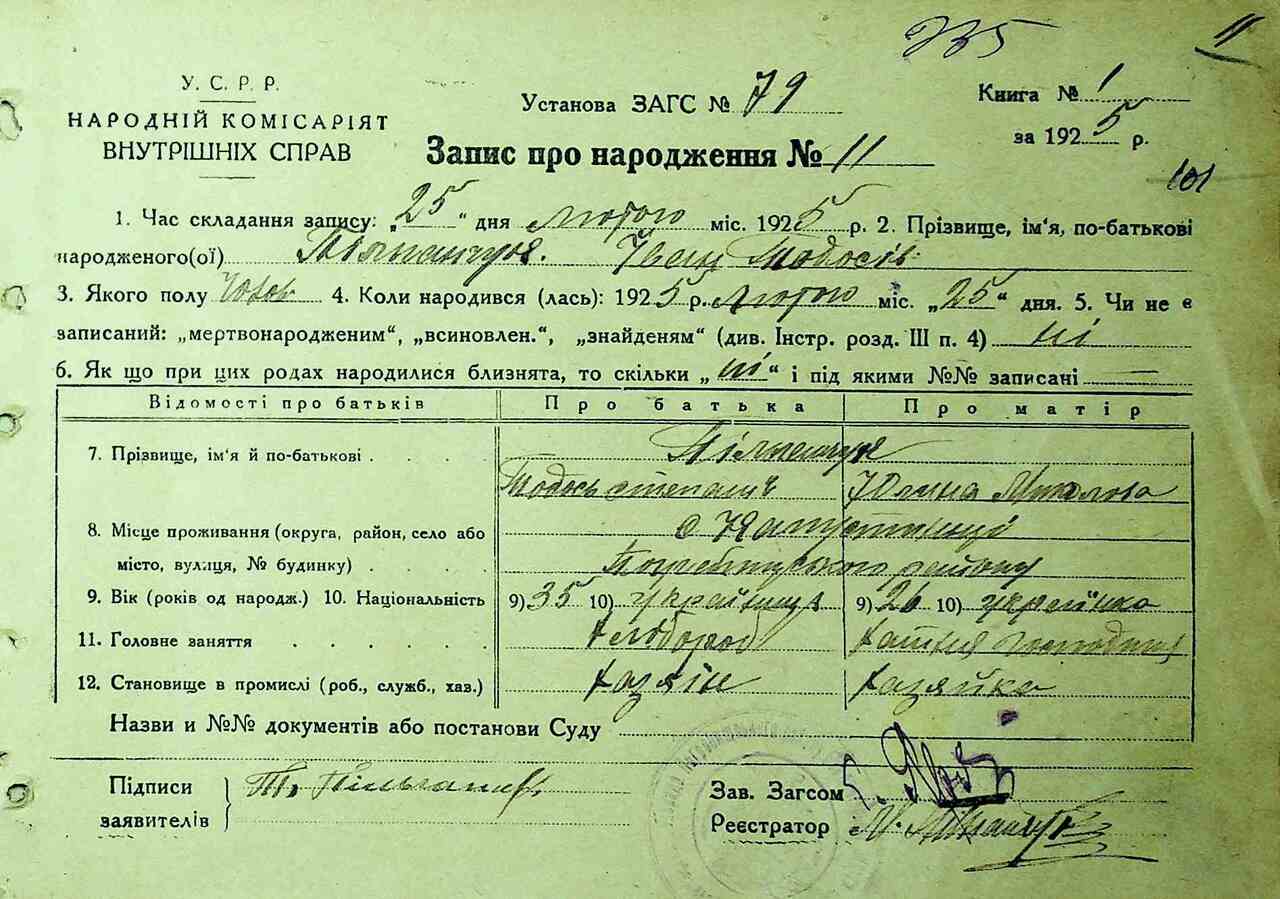 235
11
У. С. Р. Р.
НАРОДНІЙ КОМІСАРІЯТ
ВНУТРІШНІХ СПРАВ
Установа ЗАГС № 79
Книга № 1
за 1925 р.
Запис про народження № 11
101
1. Час складання запису: „25“ дня лютого міс. 1925 р. 2. Прізвище, ім'я, по-батькові
народженого(ої) Іван Тодосів
3. Якого полу чолов 4. Коли народився (лась): 1925 р. лютого міс. „25“ дня. 5. Чи не є
записаний: „мертвонародженим“, „всиновлен.“, „знайденям“ (див. Інстр. розд. III п. 4) ні
6. Як що при цих родах народилися близнята, то скільки „ні“ і під якими №№ записані —
Відомості про батьків Про батька Про матір
7. Прізвище, ім'я й по-батькові . . . .
Тодось Степанів
8. Місце проживання (округа, район, село або с Капустинці
місто, вулиця, № будинку) . . . . району
9. Вік (років од народж.) 10. Національність 9) 35 10) українець 9) 26 10) українка
11. Головне заняття . . . . . . хлібороб хатня господиня
12. Становище в промислі (роб., служб., хав.) хазяїн хазяйка
Назви и №№ документів або постанови Суду
Підписи
заявителів
Т.
Зав. Загсом
Реєстратор